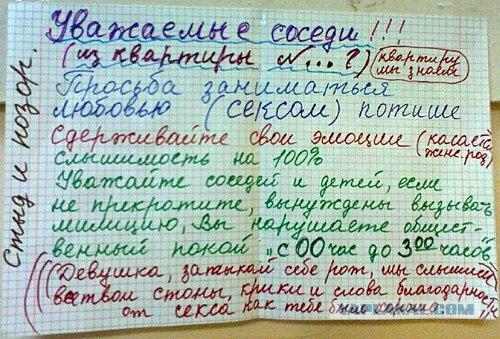 Уважаемые соседи!!!
(из квартиры №...?) (квартиру мы знаем)
Просьба заниматься
любовью (сексом) потише
Сдерживайте свои эмоции (касается женс. род)
слышимость на 100%
Уважайте соседей и детей, если
не прекратите, вынуждены вызывать
милицию, Вы нарушаете общест-
венный покой „с 00 час до 3 00 часов"
(((Девушка, затыкай себе рот, мы слышим
все твои стоны, крики и слова благодарности
от секса как тебе было хорошо
Стыд и позор.